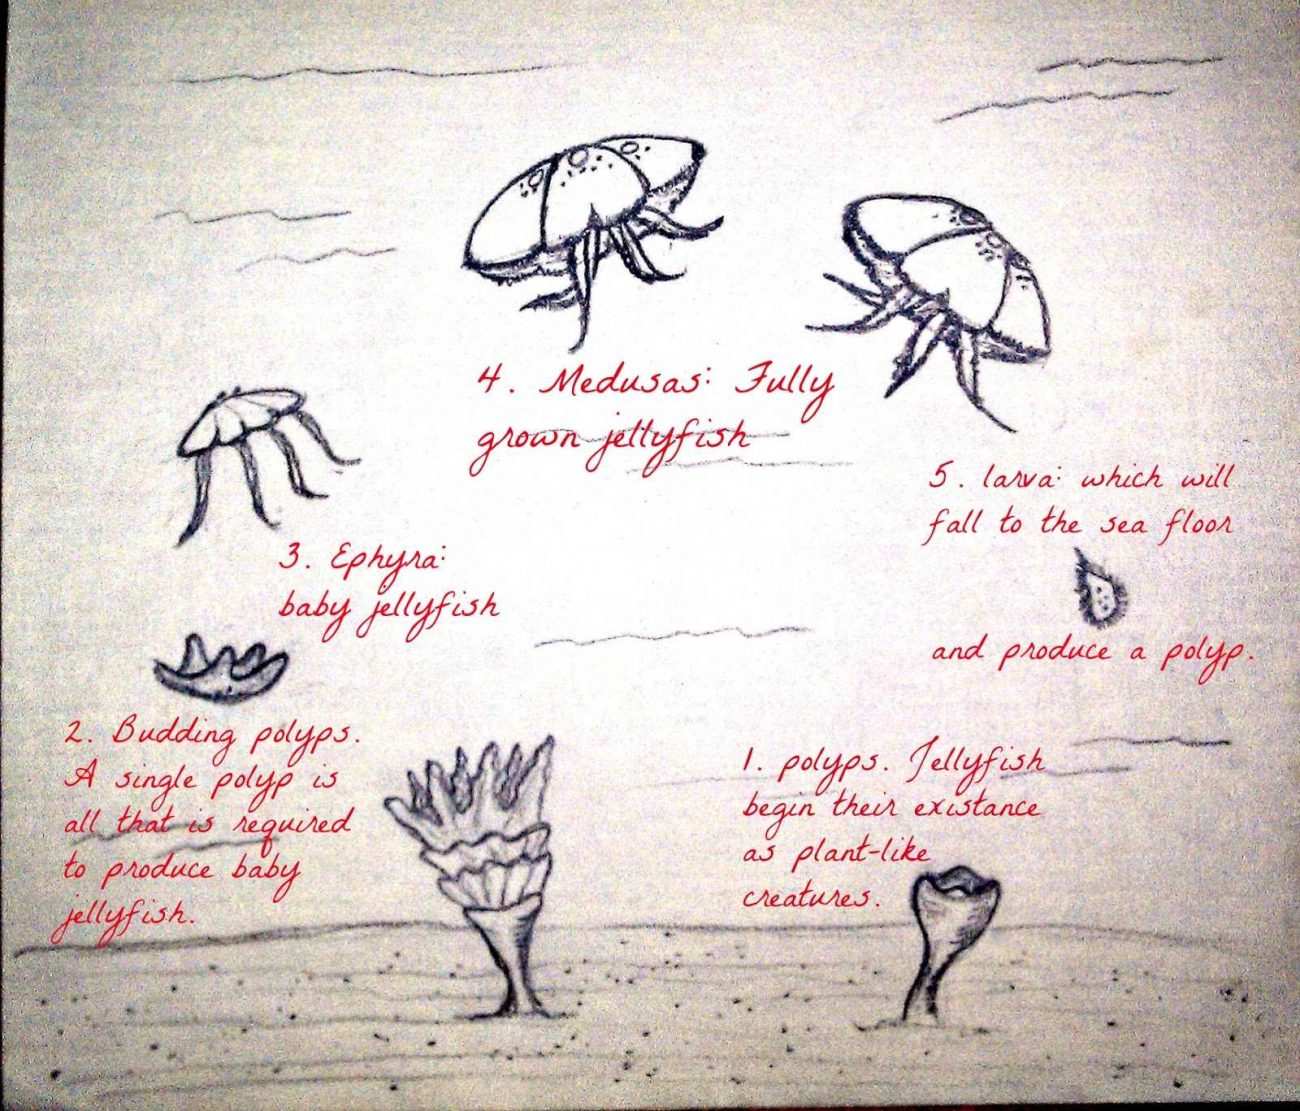 4. Medusas: Fully
grown jellyfish
5. larva: which will
fall to the sea floor
and produce a polyp.
3. Ephyra:
baby jellyfish
2. Budding polyps.
A single polyp is
all that is required
to produce baby
jellyfish.
1. polyps. Jellyfish
begin their existance
as plant-like
creatures.